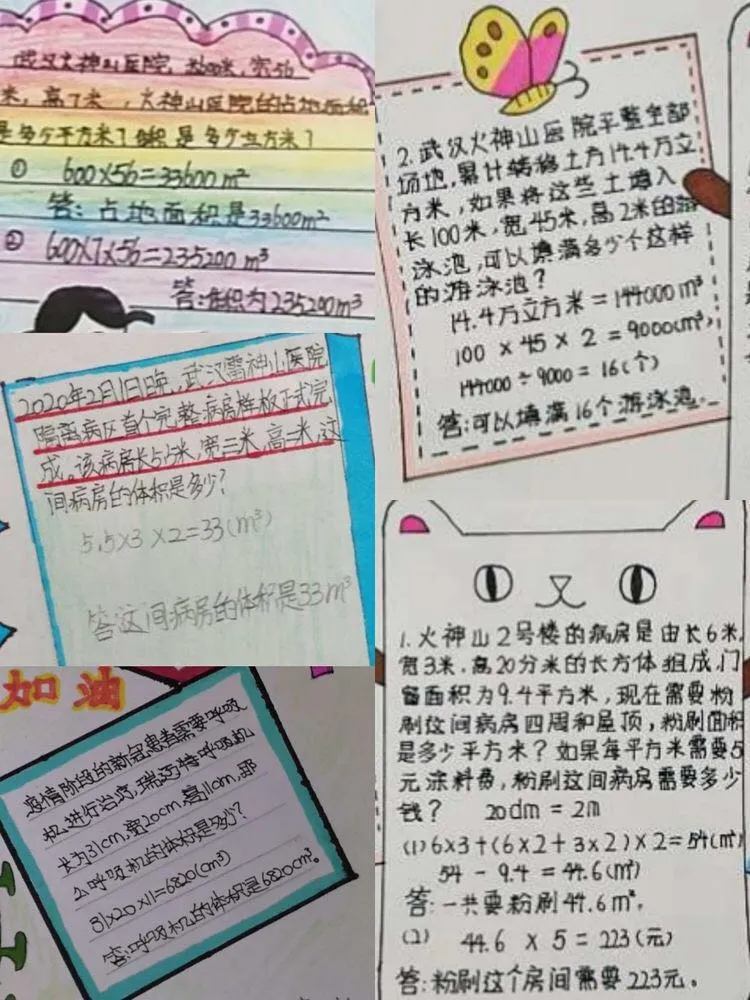 武汉火神山医院,长600米,宽56
米,高7米,火神山医院的占地面积
是多少平方米?体积是多少立方米?
① 600×56=33600m²
答:占地面积是33600m²
② 600×7×56=235200m³
答:体积为235200m³
2.武汉火神山医院平整全部
场地,累计转移土方14.4万立
方米,如果将这些土填入
长100米,宽45米,高2米的游
泳池,可以填满多少个这样
的游泳池?
14.4万立方米=144000m³
100×45×2=9000(m³)
144000÷9000=16(个)
答:可以填满16个游泳池.
2020年2月1日晚,武汉雷神山医院
隔离病区首个完整病房样板正式完
成。该病房长5.5米,宽三米,高二米,这
间病房的体积是多少?
5.5×3×2=33(m³)
答:这间病房的体积是33m³
加油
疫情阶段的新冠患者需要呼吸
机进行治疗,瑞迈特呼吸机
长为31cm,宽20cm,高11cm,那
么呼吸机的体积是多少?
31×20×11=6820(cm³)
答:呼吸机的体积是6820cm³。
1.火神山2号楼的病房是由长6米,
宽3米,高20分米的长方体组成,门
窗面积为9.4平方米,现在需要粉
刷这间病房四周和屋顶,粉刷面积
是多少平方米?如果每平方米需要5
元涂料费,粉刷这间病房需要多少
钱? 20dm=2m
(1)6×3+(6×2+3×2)×2=54(m²)
54-9.4=44.6(m²)
答:一共要粉刷44.6m²,
(2) 44.6×5=223(元)
答:粉刷这个房间需要223元。